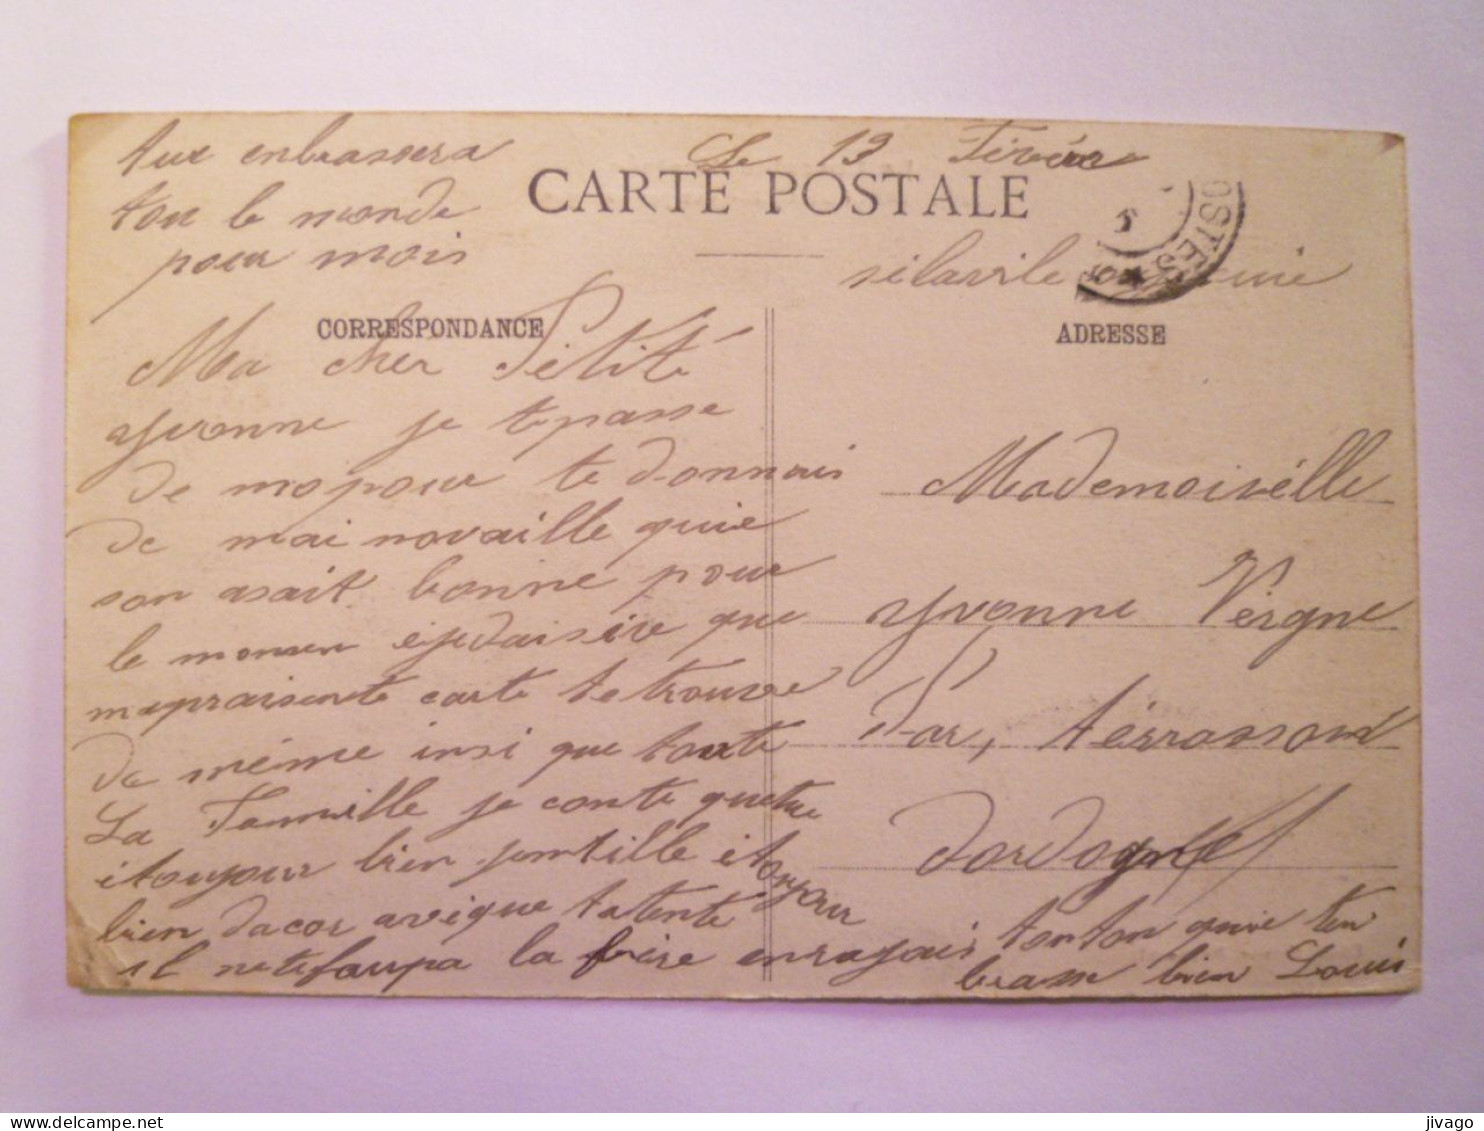 Le 19 Février
CARTE POSTALE
tux enbrassera
tou le monde
pour mois
OSTES
CORRESPONDANCE
ADRESSE
Ma cher Pétité
Yvonne je te passe
de mo pour te donnais
de mai novaille quie
son asait bonne pour
le momen ejedaisire que
mapraisente carte te trouve
de même insi que toute
La Famille je conte que tue
étoujour bien jentille étoujour
bien dacor avique tatente
il netefaupa la faire enrajais
Mademoisélle
Yvonne Vergne
Par, térrasson
Dordogne
tonton quie ten
brasse bien Louis
jivago